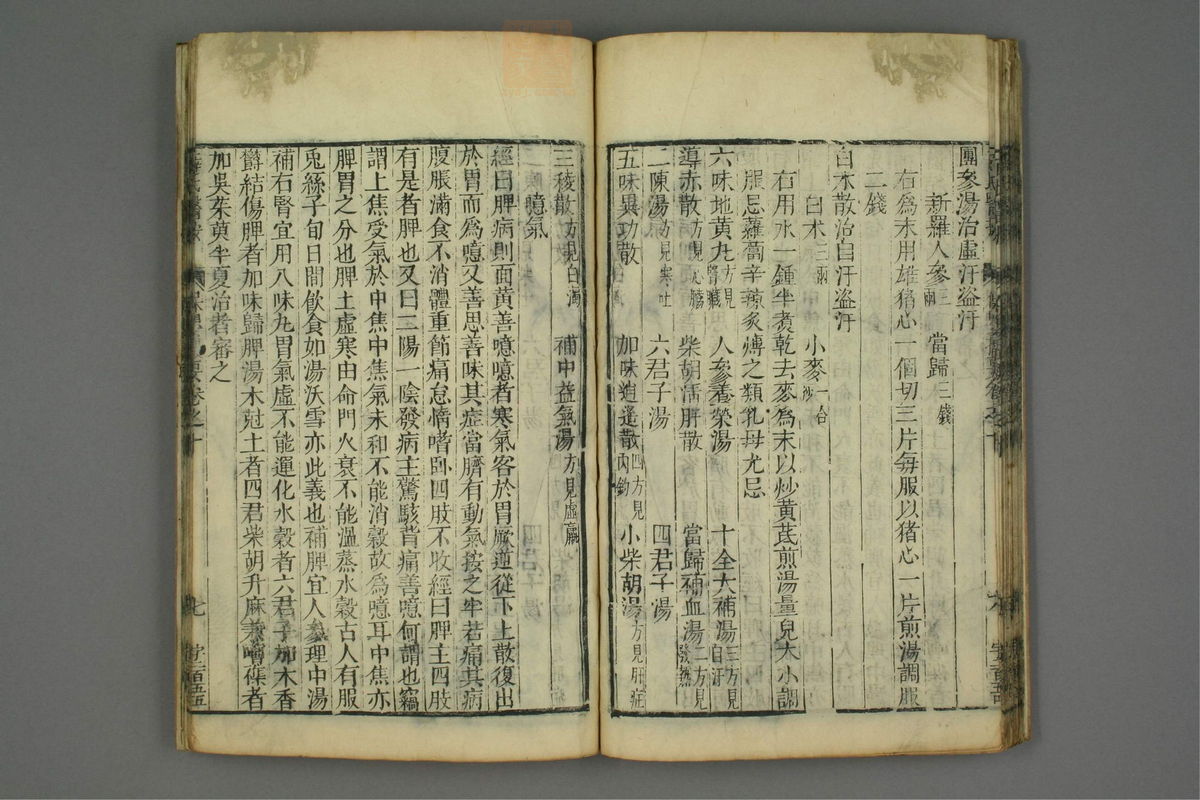 團參湯治虛汗盜汗
新羅人參 當歸三錢
右爲末用雄猪心一個切三片每服以猪心一片煎湯調服
二錢
白朮散治自汗盜汗
白朮三兩 小麥一合炒
右用水一鍾半煑乾去麥爲末以炒黄芪煎湯量兒大小調
服忌蘿蔔辛辣炙煿之類乳母尤忌
六味地黄丸方見腎臟 人參養榮湯 十全大補湯三方見自汗
導赤散方見心臟 柴胡清肝散 當歸補血湯二方見發熱
二陳湯方見寒吐 六君子湯 四君子湯
五味異功散 加味逍遥散四方見内鈞 小柴胡湯方見肝症
三稜散方見白濁 補中益氣湯方見虛羸
噫氣
經曰脾病則面黄善噫噫者寒氣客於胃厥逆從下上散復出
於胃而爲噫又善思善味其症當臍有動氣按之牢若痛其病
腹脹滿食不消體重節痛怠惰嗜卧四肢不收經曰脾主四肢
有是者脾也又曰三陽一陰發病主驚駭背痛善噫何謂也竊
謂上焦受氣於中焦中焦氣未和不能消穀故爲噫耳中焦亦
脾胃之分也脾土虛寒由命門火衰不能溫蒸水穀古人有服
兎絲子旬日間飲食如湯沃雪亦此義也補脾宜人參理中湯
補右腎宜用八味丸胃氣虛不能運化水穀者六君子加木香
鬱結傷脾者加味歸脾湯木尅土者四君柴胡升麻兼嘈雜者
加吳茱萸半夏治者審之
卷之十
七